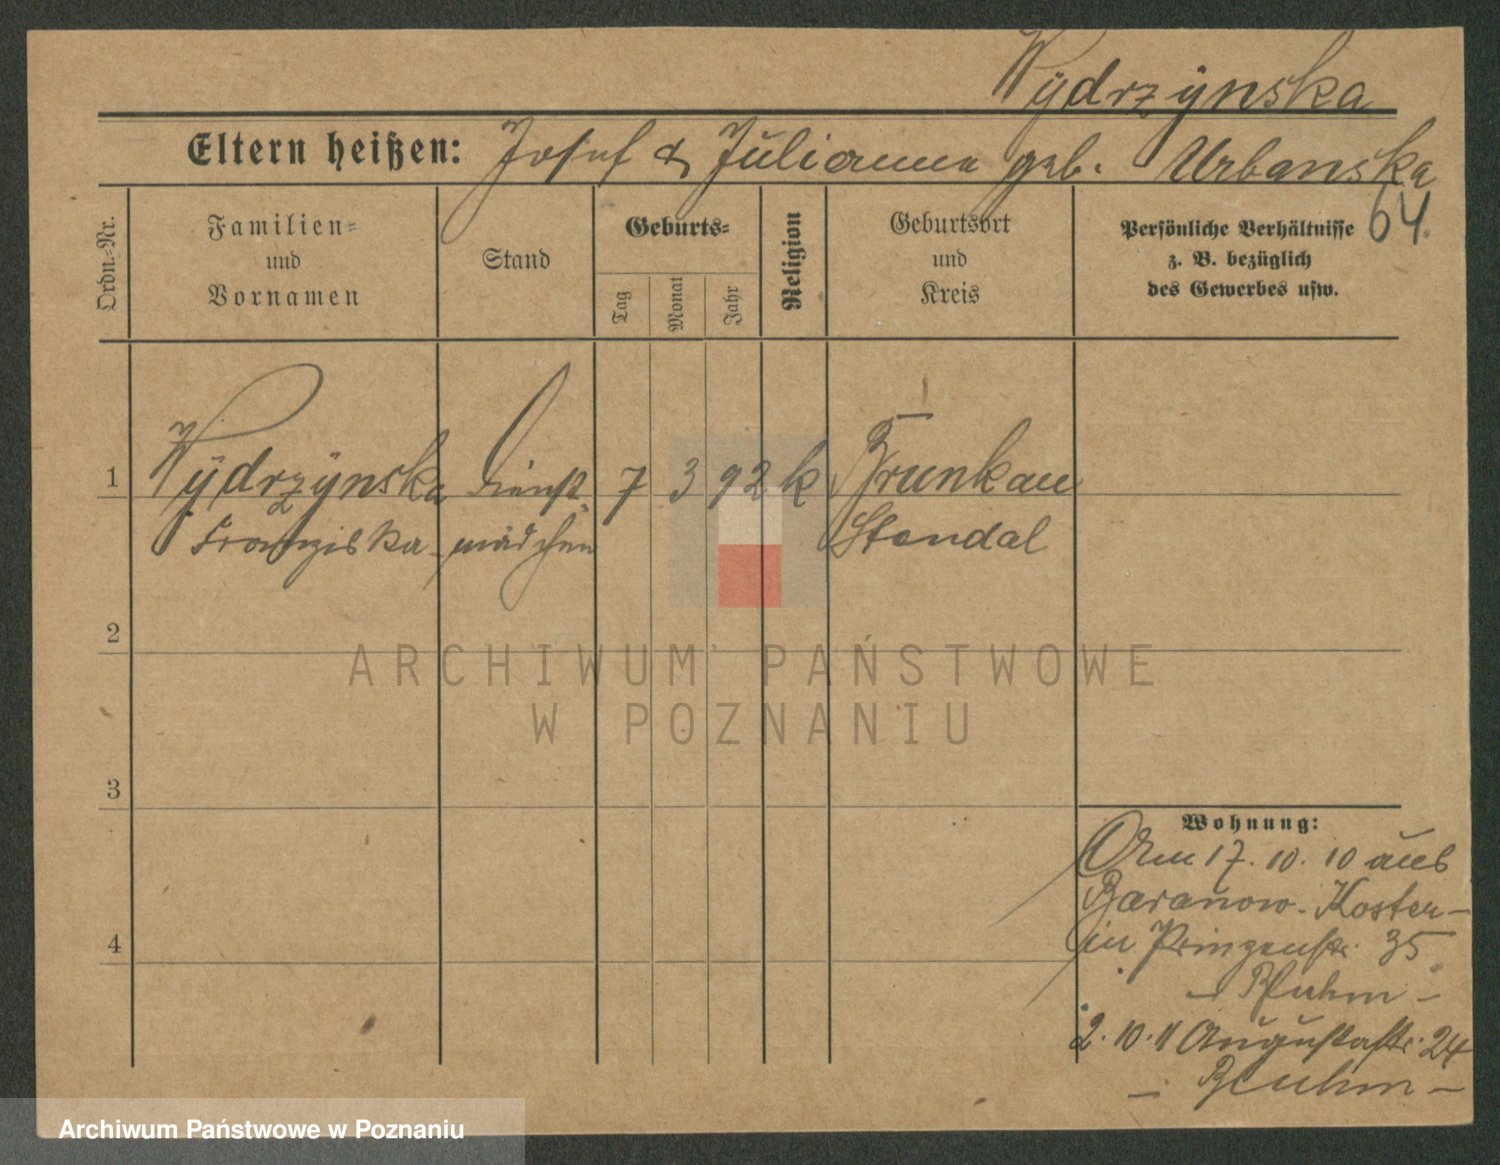 Wydrzynska
Eltern heißen: Josef & Julianna geb. Urbanska
64.
Ordn.-Nr.
Familien-
und
Vornamen
Stand
Geburts-
Tag
Monat
Jahr
Religion
Geburtsort
und
Kreis
Persönliche Verhältnisse
z. B. bezüglich
des Gewerbes usw.
1 Wydrzynska Dienst- 7 3 92 k Brunkau
Franziska mädchen Stendal
2
3
4
Wohnung:
Am 17. 10. 10 aus
Baranow- Koster-
in Prinzenstr. 35
- Bluhm -
2. 10. 11 Augustastr. 24
- Bluhm -
ARCHIWUM PAŃSTWOWE
W POZNANIU
Archiwum Państwowe w Poznaniu